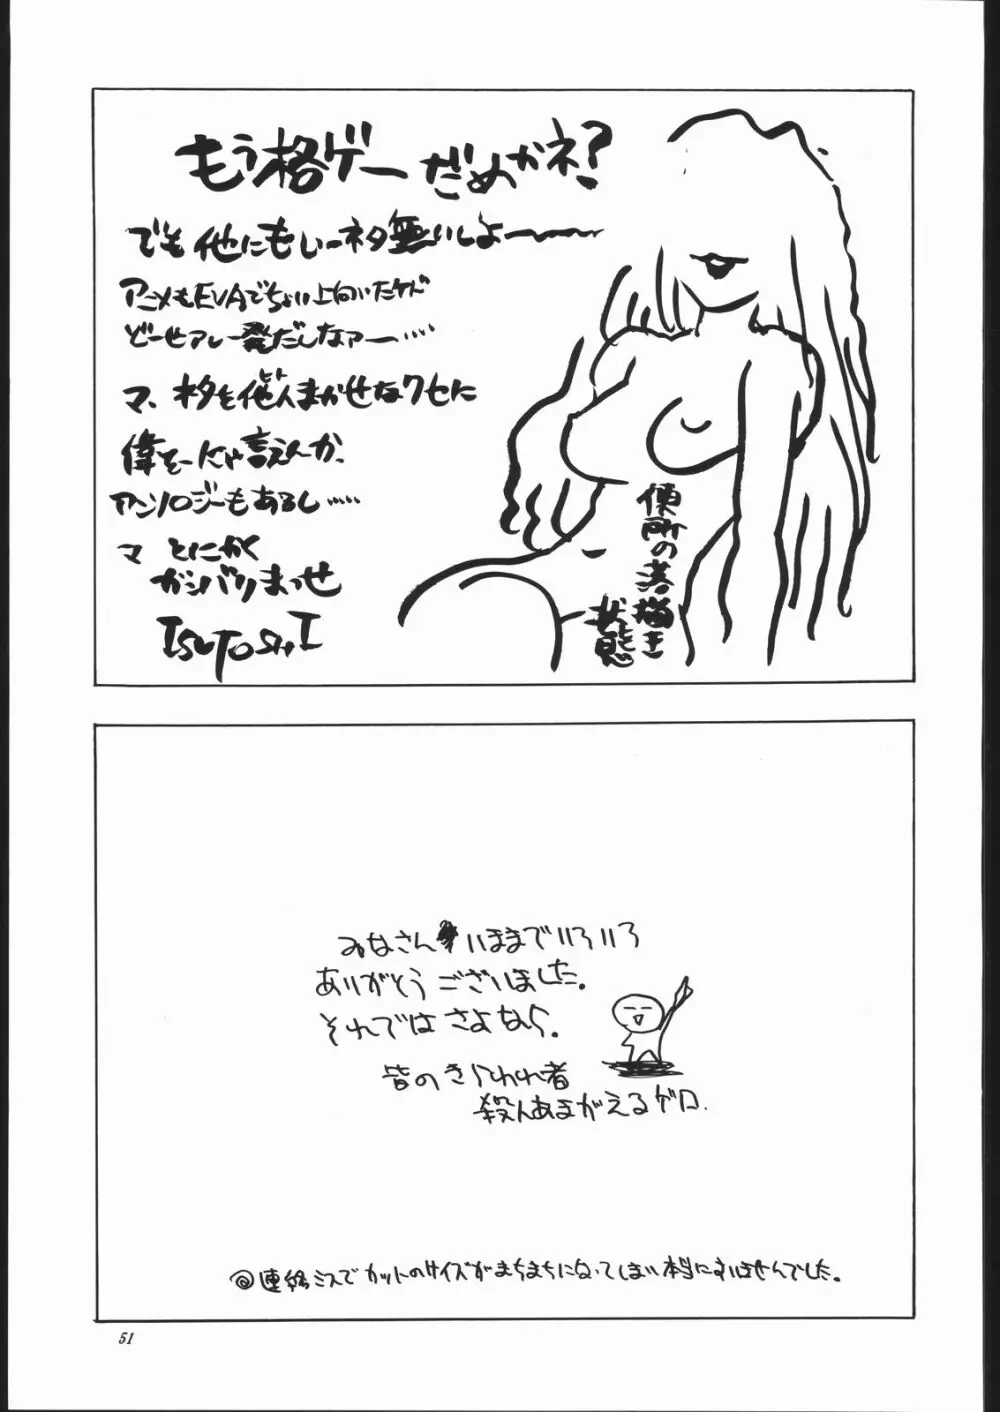 もう格ゲーだめかネ?
でも他にもいーネタ無いしよー〜〜
アニメもEVAでちょい上向いたケド
どーせアレ一発だしなァー……
マ、ネタを他人まかせなクセに
ヒト
偉そーにゃ言えんか、
アンソロジーもあるし……
マ とにかく
ガンバりまっせ
TSUTOSHI
便所の落描き
状態
みなさん いままでいろいろ
ありがとうございました。
それではさよなら。
皆のきらわれ者
殺人あまがえるゲロ.
◎連絡ミスでカットのサイズがまちまちになってしまい本当にすいませんでした。
51